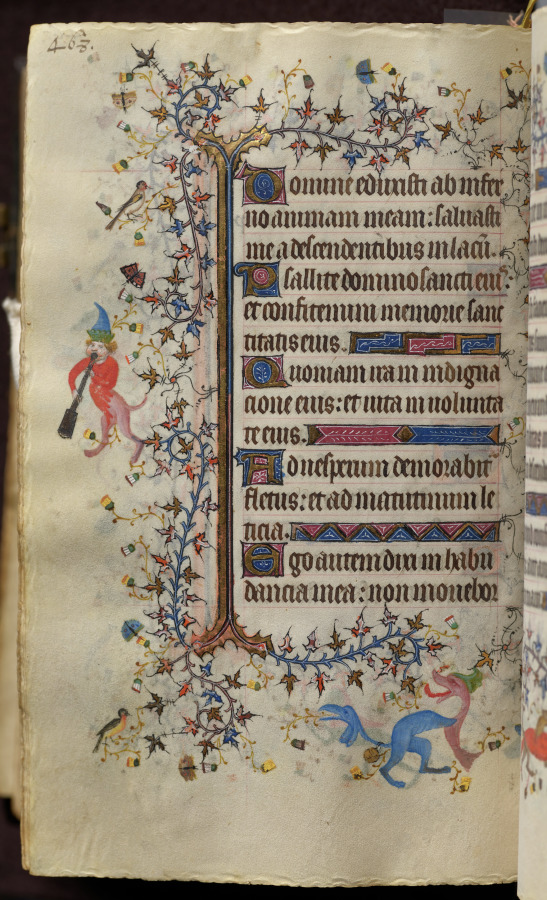 463.
Domine eduxisti ab infer
no animam meam: saluasti
me a descendentibus in lacū.
Psallite domino sancti eiuˢ:
et confitemini memorie sanc
titatis eius.
Quoniam ira in indigna
cione eius: et uita in uolunta
te eius.
Ad uesperum demorabit᷑
fletus: et ad matutinum le
ticia.
Ego autem dixi in habu
dancia mea: non mouebor